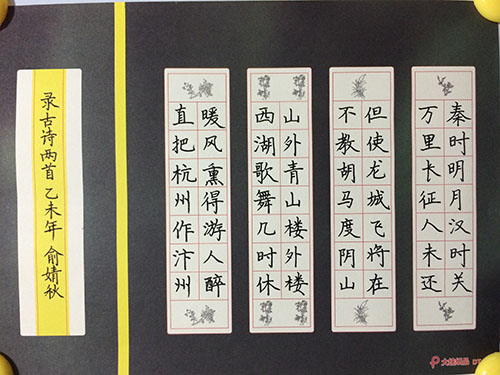 秦时明月汉时关
万里长征人未还
但使龙城飞将在
不教胡马度阴山
山外青山楼外楼
西湖歌舞几时休
暖风熏得游人醉
直把杭州作汴州
录古诗两首 乙未年 俞婧秋